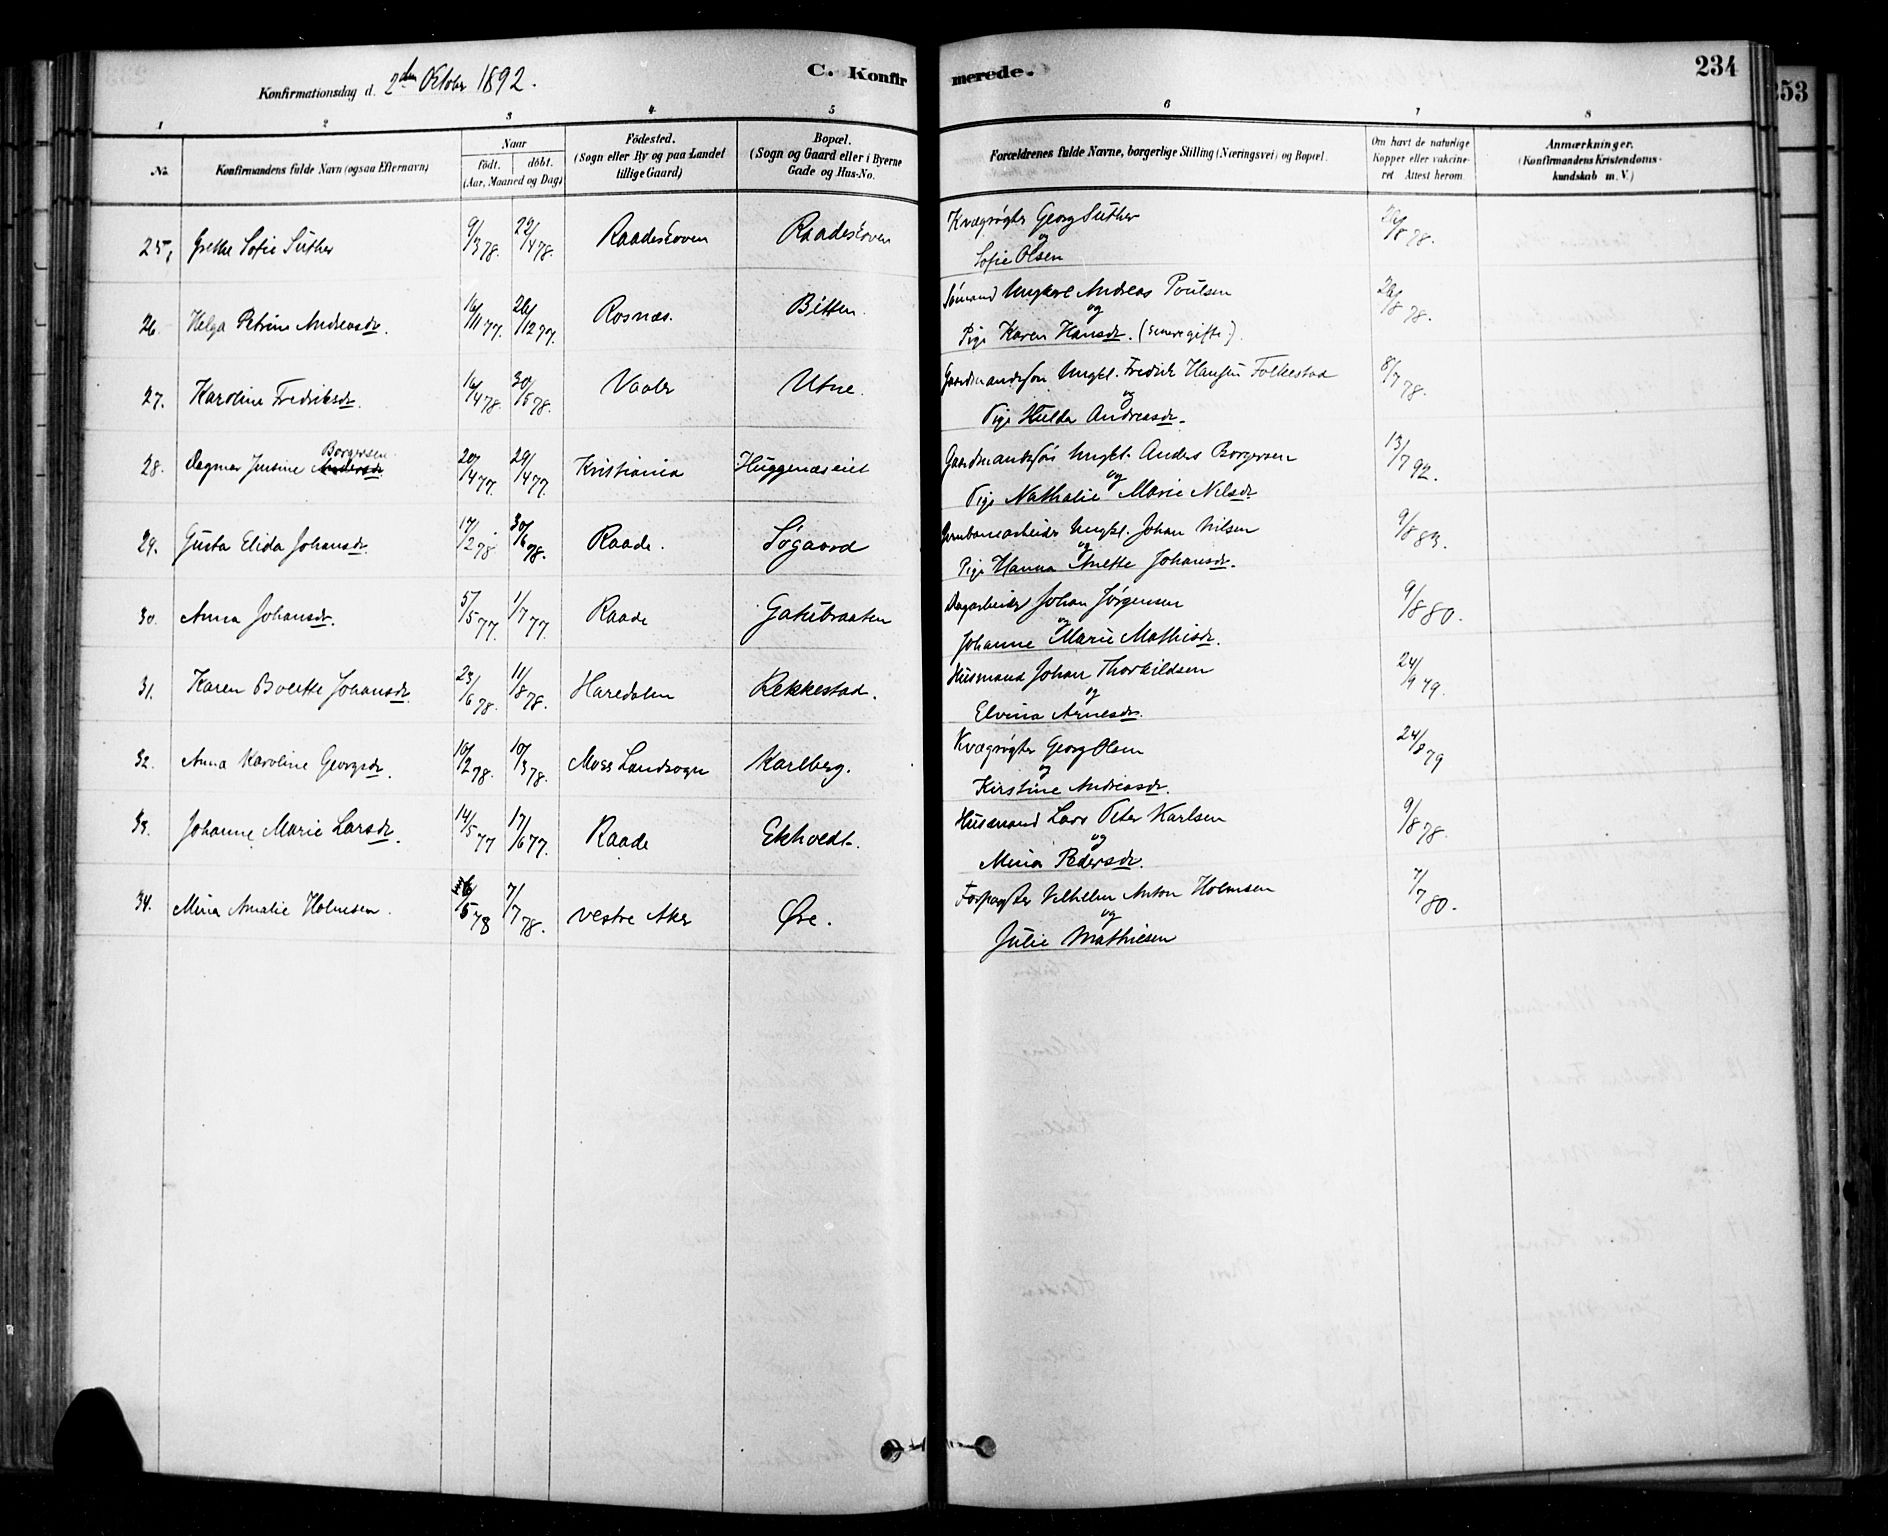 Konfirmationsdag d. 2den October 1892.
C. Konfirmerede.
234
253
1 2 3 4 5 6 7 8
No. Konfirmandens fulde Navn (ogsaa Efternavn) Naar født. døbt. (Aar, Maaned og Dag) Fødested. (Sogn eller By og paa Landet tillige Gaard) Bopæl. (Sogn og Gaard eller i Byerne Gade og Hus-No. Forældrenes fulde Navne, borgerlige Stilling (Næringsvei) og Bopæl. Om havt de naturlige Kopper eller vakcineret Attest herom. Anmærkninger. (Konfirmandens Kristendomskundskab m. V.)
25, Grethe Sofie Suther 9/3 78. 22/4 78. Raadeskoven Raadeskoven Kvægrøgter Georg Suther 26/8 78.
og
Sofie Olsen
26. Helga Petrine Andreasdr. 16/11 77. 26/12 77. Rosnæs. Bitten. Sømand Ungkarl Andreas Poulsen 26/8 78.
og
Pige Karen Hansdr. (senere gifte).
27. Karoline Fredriksdr. 16/4 78. 30/6 78. Vaaler Utne. Gaardmandssøn Ungkl. Fredrik Hansen Folkestad 8/7 78.
og
Pige Hulda Andreasdr.
28. Dagmar Justine Andersdr. Borgersen 20/4 77. 29/4 77. Kristiania Huggenæseiet Gaardmandssøn Ungkl. Anders Borgersen 13/7 92.
og
Pige Nathalie Marie Nilsdr.
29. Gusta Elida Johansdr. 17/2 78. 30/6 78. Raade. Søgaard Jernbanearbeider Ungkl. Johan Nilsen 9/8 83.
og
Pige Hanna Anette Johansdr.
30. Anna Johansdr. 5/5 77. 1/7 77. Raade Gatubraaten Dagarbeider Johan Jørgensen 9/8 80.
og
Johanne Marie Mathisdr.
31. Karen Bolette Johansdr. 23/6 78. 11/8 78. Haredalen Rekkestad. Husmand Johan Thorkildsen 24/9 79.
og
Elvina Arnesdr.
32. Anna Karoline Georgsdr. 10/2 78. 10/3 78. Moss Landsogn Karlberg. Kvægrøgter Georg Olsen 24/8 79
og
Kirstine Andreasdr.
33. Johanne Marie Larsdr. 14/5 77 17/6 77. Raade Ekholdt. Husmand Lars Peter Karlsen 9/8 78.
og
Mina Pedersdr.
34. Mina Amalie Holmsen. 6/5 78 7/7 78. Vestre Aker Øre. Forpagter Vilhelm Anton Holmsen 7/7 80.
og
Julie Mathiesen